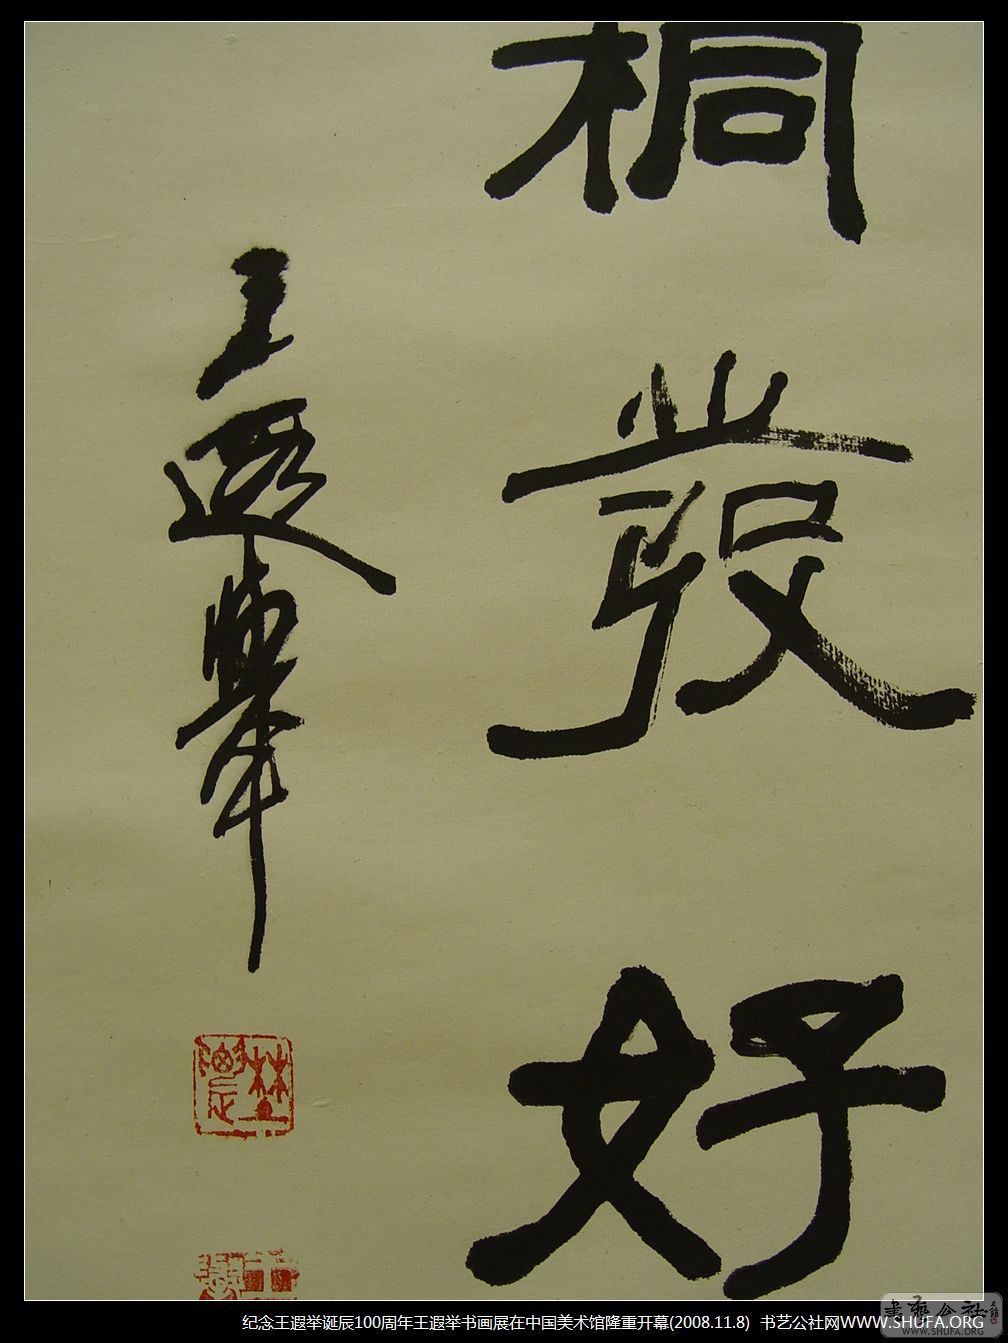 桐發好
王遐舉
纪念王遐举诞辰100周年王遐举书画展在中国美术馆隆重开幕(2008.11.8) 书艺公社网WWW.SHUFA.ORG
書藝公社
WWW.SHUFA.ORG